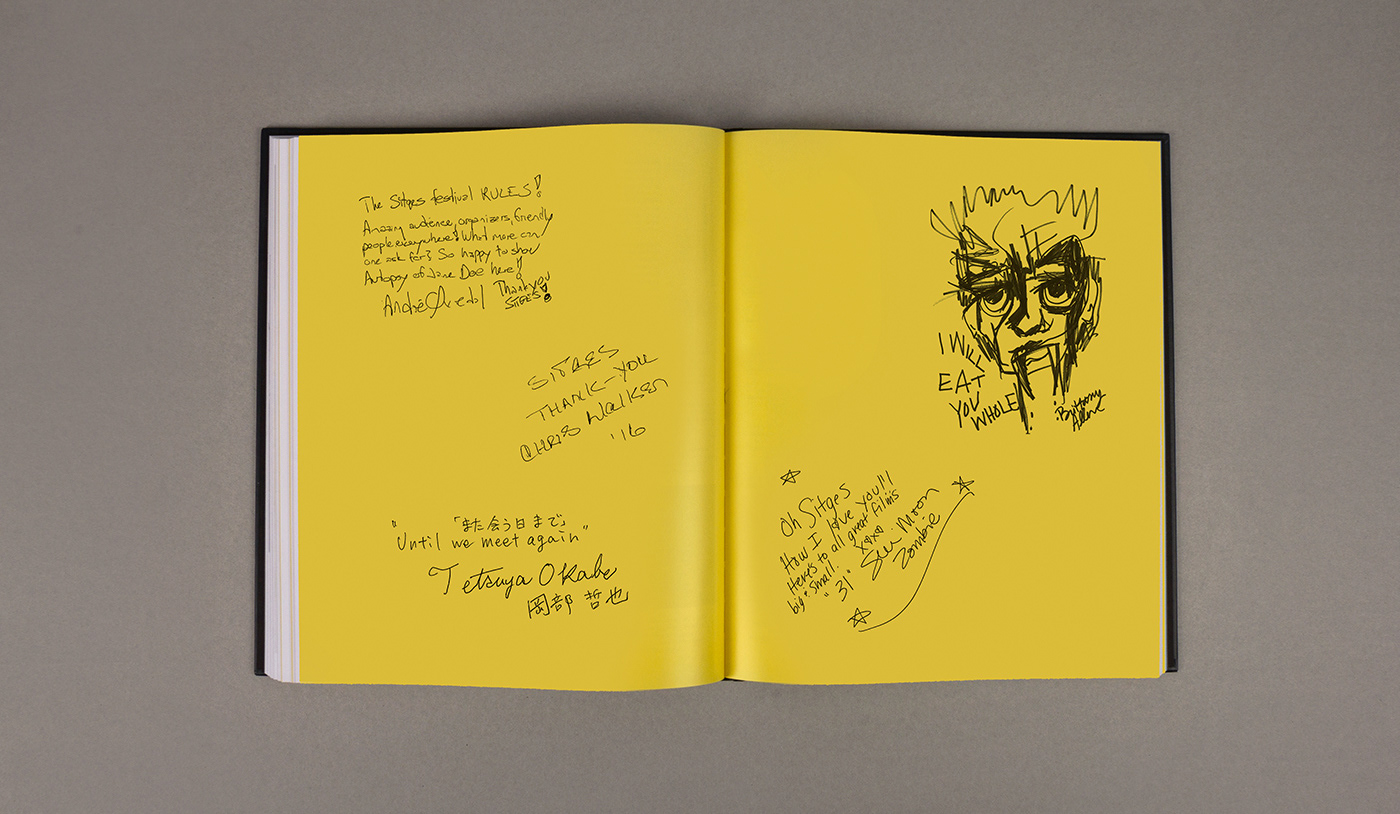 The Sitges festival RULES!
Amazing audience, organizers, friendly
people everywhere! What more can
one ask for? So happy to show
Autopsy of Jane Doe here!
André Øvredal Thank you
SITGES!
SITGES
THANK-YOU
CHRIS WALKEN
'16
"「また会う日まで」
Until we meet again"
Tetsuya Okabe
岡部 哲也
I WILL
EAT
YOU
WHOLE
Brittany
Allen
Oh Sitges
How I love you!!!
Here's to all great films
big & small. xoxo
"31" Sheri Moon
Zombie